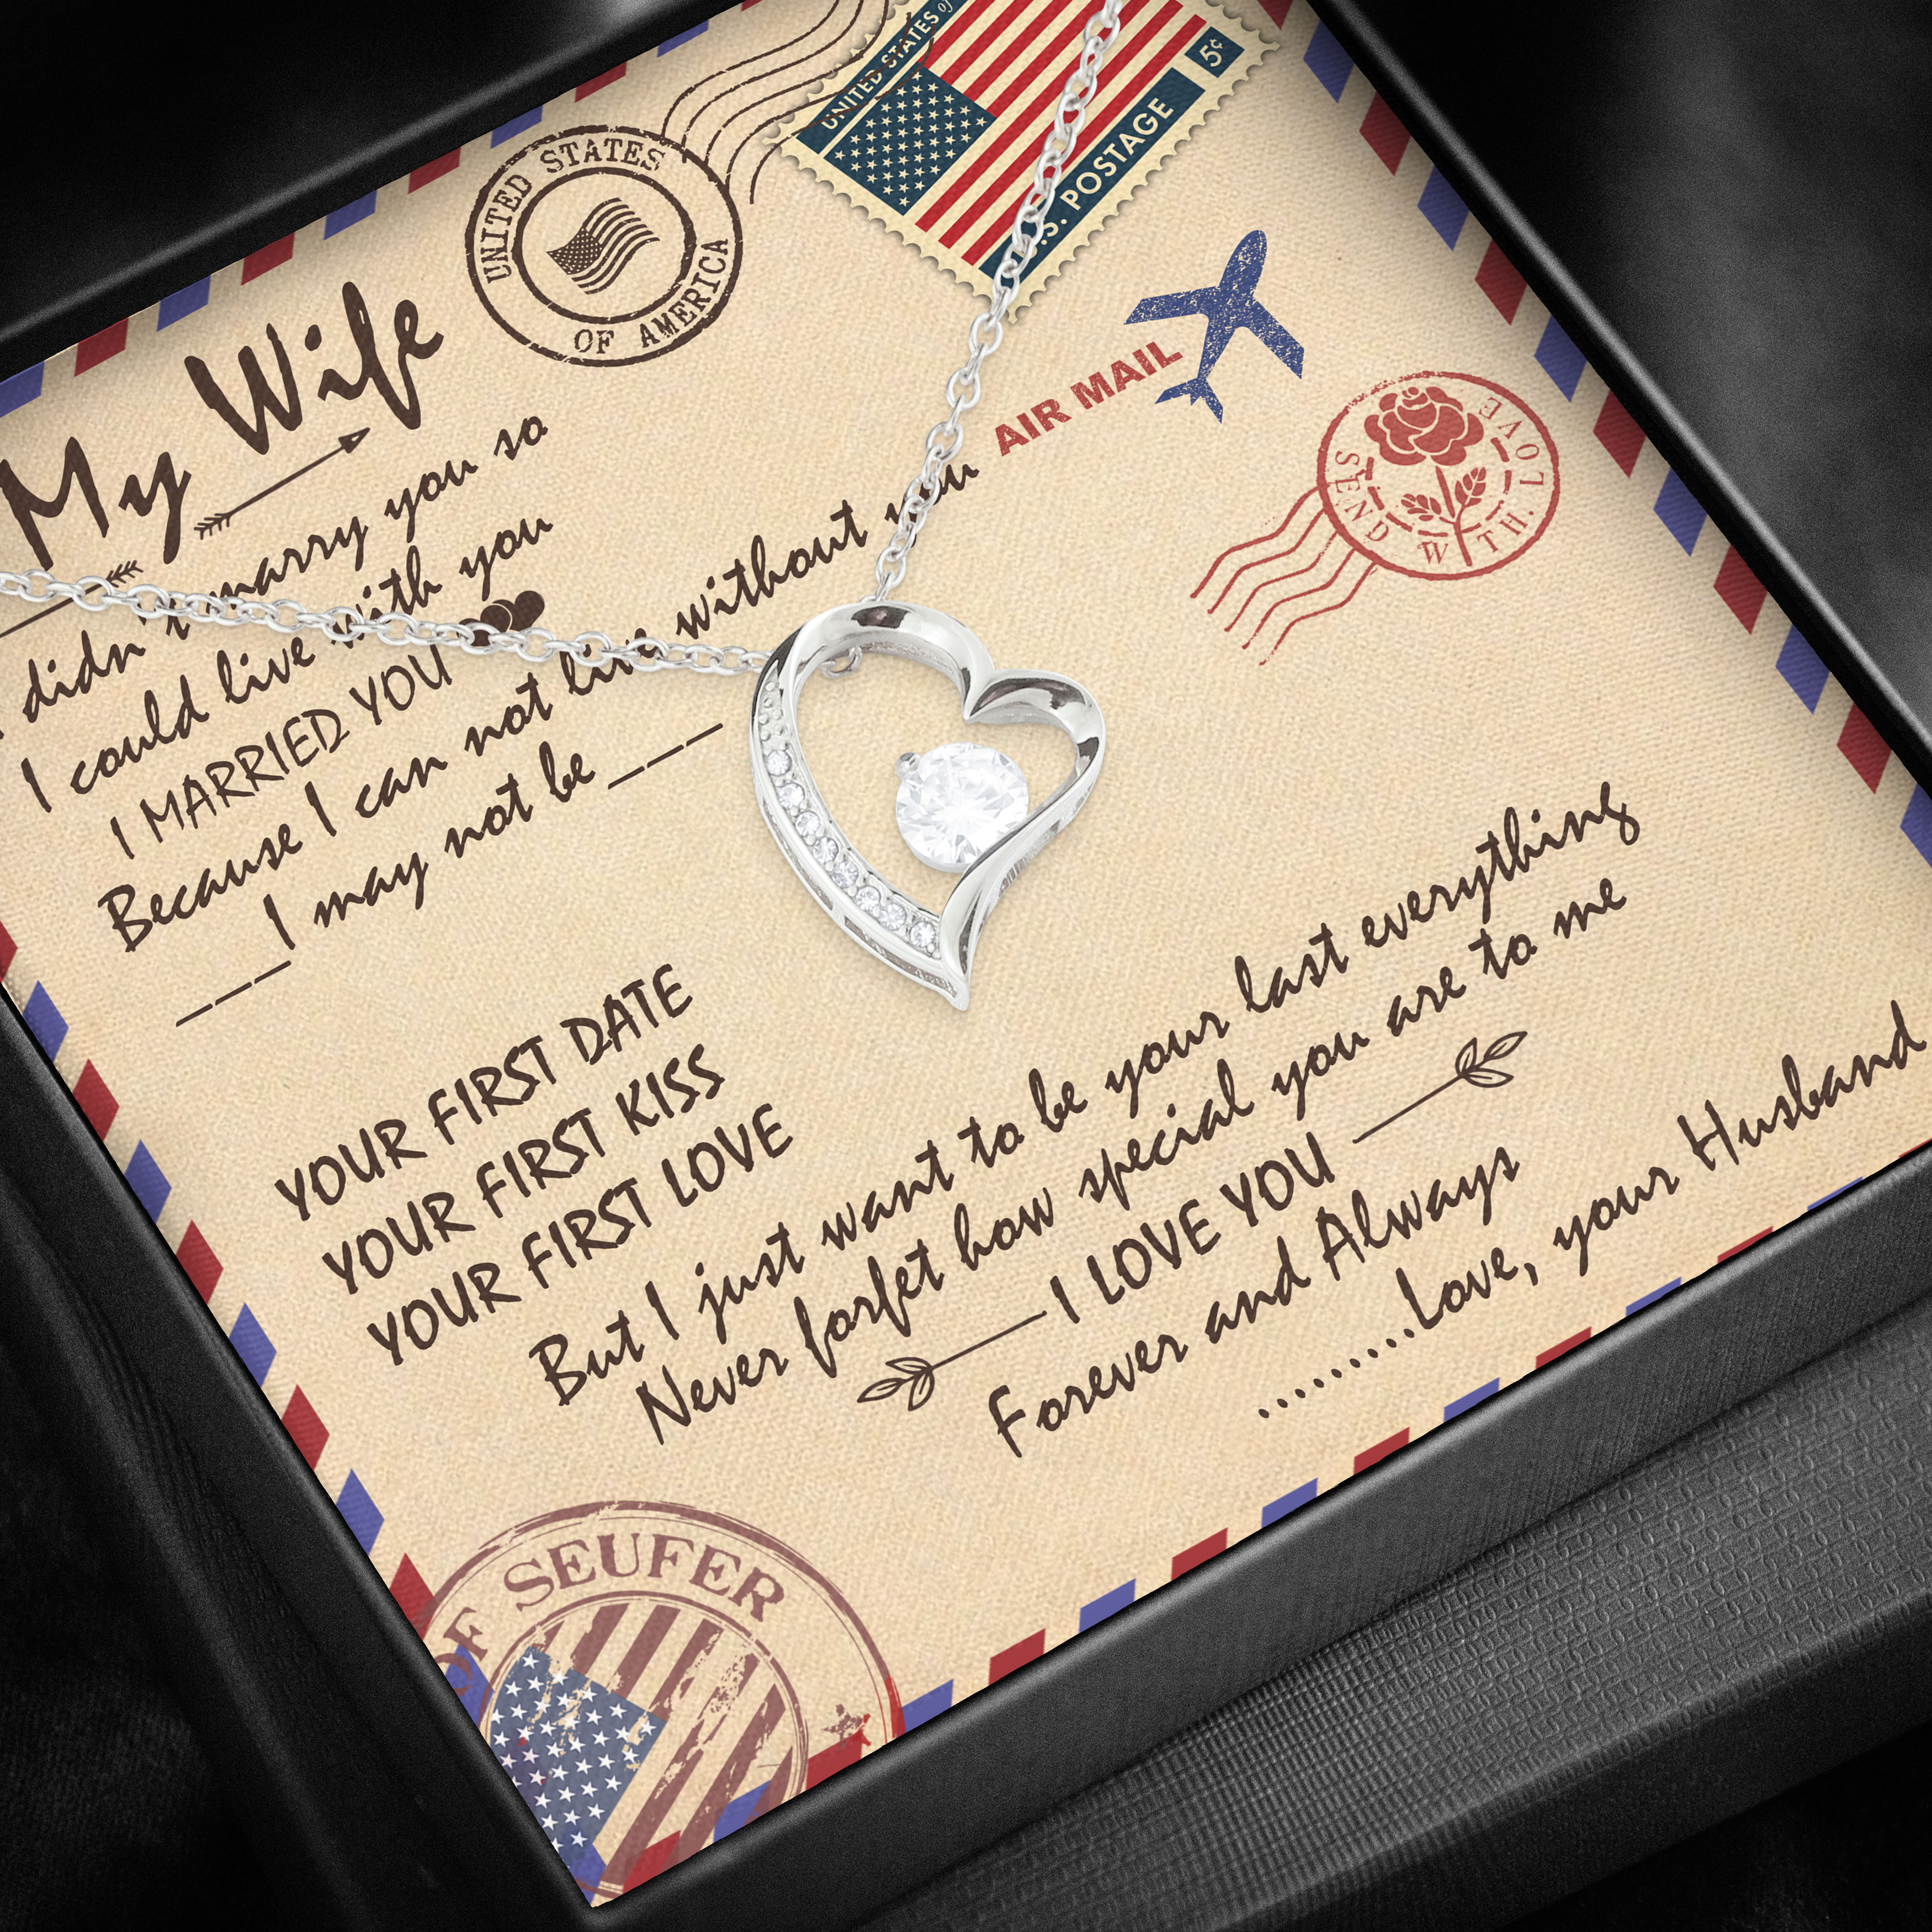 UNITED STATES of
5¢
U.S. POSTAGE
UNITED STATES
OF AMERICA
AIR MAIL
SEND WITH. LOVE
My Wife
didn't marry you so
I could live with you
I MARRIED YOU
Because I can not live without you
I may not be ----
----
YOUR FIRST DATE
YOUR FIRST KISS
YOUR FIRST LOVE
But I just want to be your last everything
Never forfet how special you are to me
I LOVE YOU
Forever and Always
.........Love, your Husband
OF SEUFER